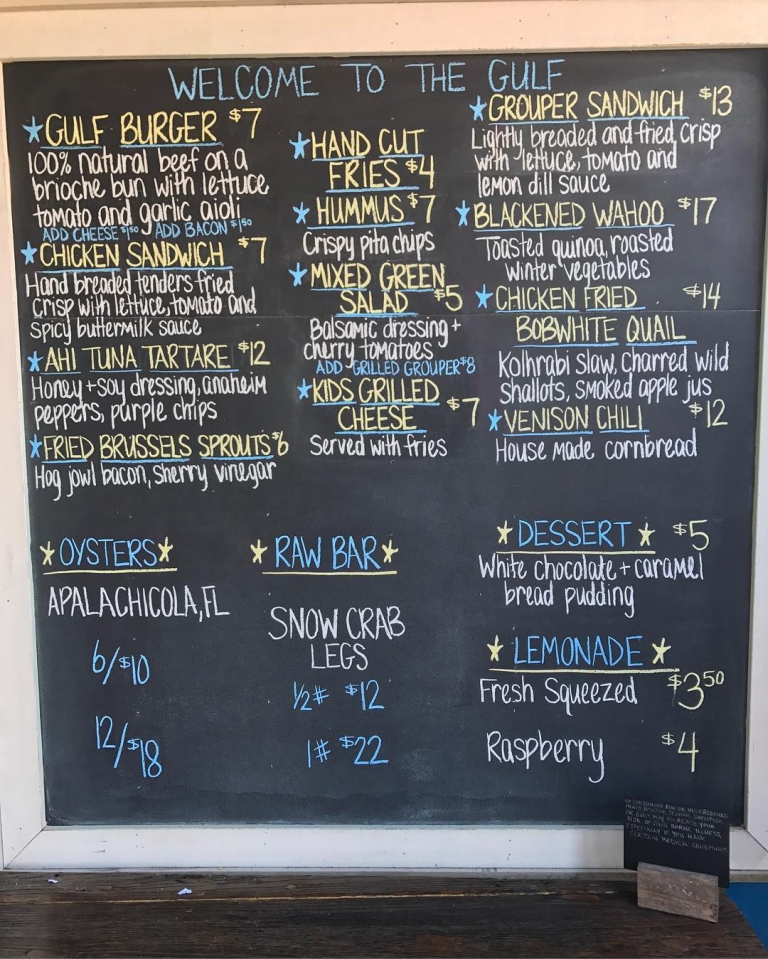 WELCOME TO THE GULF
★GULF BURGER $7
100% natural beef on a
brioche bun with lettuce
tomato and garlic aioli
ADD CHEESE $1.50 ADD BACON $1.50
★CHICKEN SANDWICH $7
Hand breaded tenders fried
crisp with lettuce, tomato and
spicy buttermilk sauce
★AHI TUNA TARTARE $12
Honey + soy dressing, anaheim
peppers, purple chips
★FRIED BRUSSELS SPROUTS $6
Hog jowl bacon, sherry vinegar
★HAND CUT
FRIES $4
★HUMMUS $7
Crispy pita chips
★MIXED GREEN
SALAD $5
Balsamic dressing +
cherry tomatoes
ADD GRILLED GROUPER $8
★KIDS GRILLED
CHEESE $7
Served with fries
★GROUPER SANDWICH $13
Lightly breaded and fried crisp
with lettuce, tomato and
lemon dill sauce
★BLACKENED WAHOO $17
Toasted quinoa, roasted
winter vegetables
★CHICKEN FRIED $14
BOBWHITE QUAIL
Kolhrabi slaw, charred wild
shallots, smoked apple jus
★VENISON CHILI $12
House made cornbread
★OYSTERS★
APALACHICOLA, FL
6/$10
12/$18
★RAW BAR★
SNOW CRAB
LEGS
1/2# $12
1# $22
★DESSERT★ $5
White chocolate + caramel
bread pudding
★LEMONADE★
Fresh Squeezed $3.50
Raspberry $4
RISK OF FOOD BORNE ILLNESS,
ESPECIALLY IF YOU HAVE
CERTAIN MEDICAL CONDITIONS